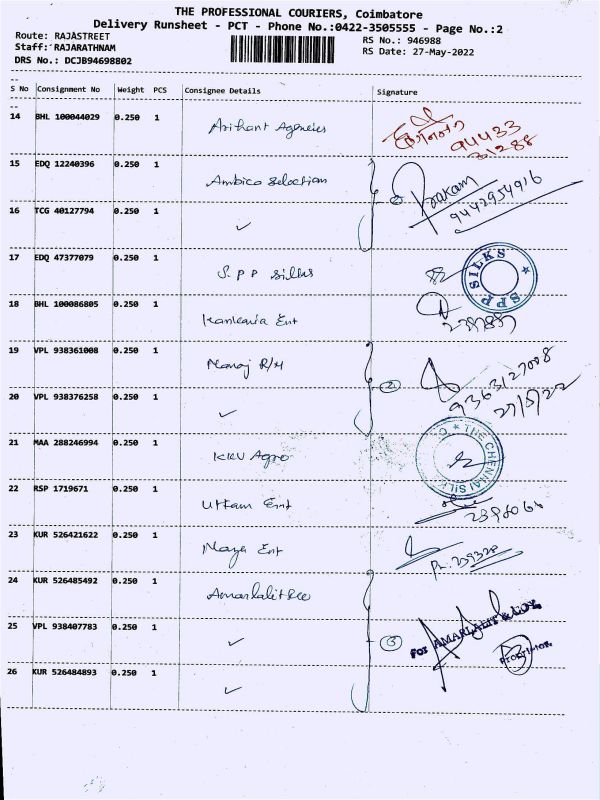 THE PROFESSIONAL COURIERS, Coimbatore
Delivery Runsheet - PCT - Phone No.:0422-3505555 - Page No.:2
Route: RAJASTREET
RS No.: 946988
Staff: RAJARATHNAM
RS Date: 27-May-2022
DRS No.: DCJB94698802
S No Consignment No Weight PCS Consignee Details Signature
14 BHL 100044029 0.250 1 Arihant Agencies
94433
31288
15 EDQ 12240396 0.250 1 Ambica Selection
Prakam
9442954916
16 TCG 40127794 0.250 1 ✓
17 EDQ 47377079 0.250 1 S.P.P Silks
SPP SILKS
18 BHL 100086805 0.250 1 Kankaria Ent
19 VPL 938361008 0.250 1 Manoj R/M
2
9363127008
27/5/22
20 VPL 938376258 0.250 1 ✓
21 MAA 288246994 0.250 1 KKV Agro
THE CHENNAI SILKS
22 RSP 1719671 0.250 1 Uttam Ent
23 KUR 526421622 0.250 1 Maya Ent
Ph. 239320
24 KUR 526485492 0.250 1 Amarlalit &co
25 VPL 938407783 0.250 1 ✓
3
For AMARLALIT & CO.
PROPRIETOR
26 KUR 526484893 0.250 1 ✓